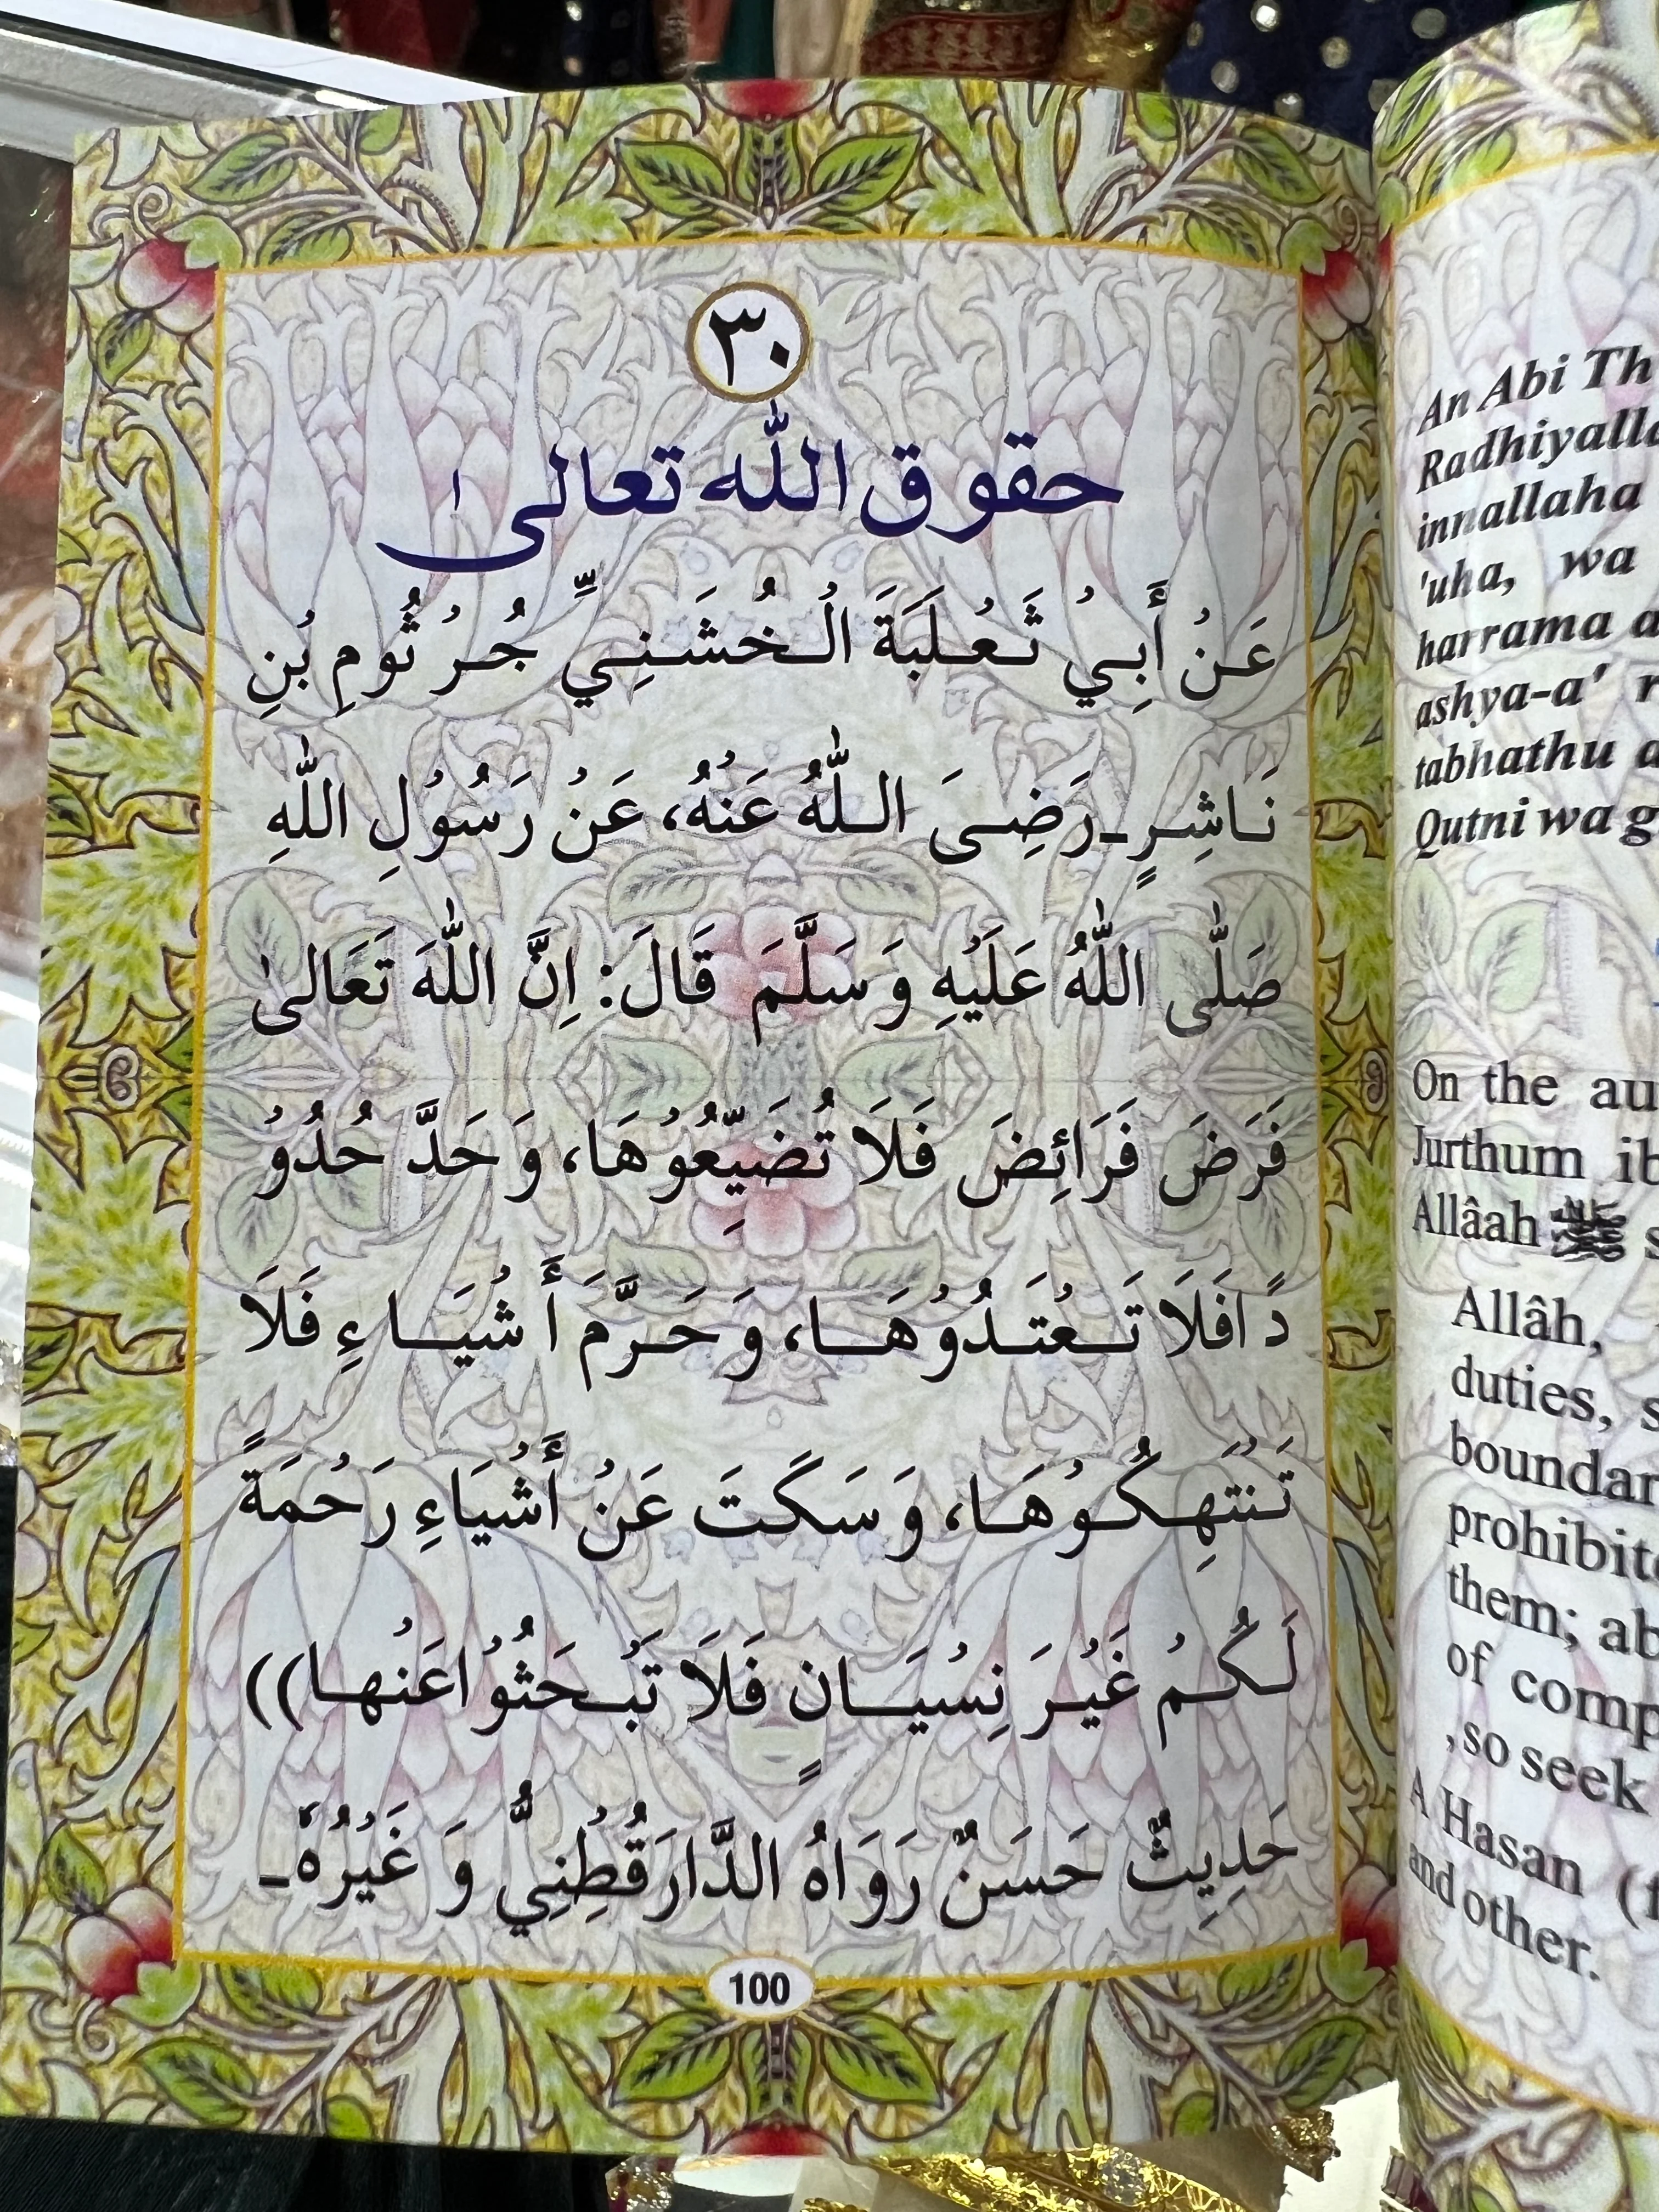 ٣٠
حقوق الله تعالى
عَنْ أَبِيْ ثَعْلَبَةَ الْخُشَنِيِّ جُرْثُومِ بْنِ
نَاشِرٍ۔رَضِىَ اللّٰهُ عَنْهُ، عَنْ رَسُوْلِ اللّٰهِ
صَلَّى اللّٰهُ عَلَيْهِ وَسَلَّمَ قَالَ: اِنَّ اللّٰهَ تَعَالىٰ
فَرَضَ فَرَائِضَ فَلَا تُضَيِّعُوْهَا، وَحَدَّ حُدُوْ
دًافَلَا تَعْتَدُوْهَا، وَحَرَّمَ أَشْيَاءِ فَلَا
تَنْتَهِكُوْهَا، وَسَكَتَ عَنْ أَشْيَاءِ رَحْمَةً
لَكُمْ غَيْرَ نِسْيَانٍ فَلَا تَبْحَثُوْاعَنْها))
حَدِيثٌ حَسَنٌ رَوَاهُ الدَّارَقُطْنِيُّ وَغَيْرُهٗ۔
100
An Abi Th
Radhiyalla
innallaha
'uha, wa
harrama a
ashya-a' r
tabhathu a
Qutni wa g
On the au
Jurthum ib
Allâah ﷺ s
Allâh,
duties, s
boundar
prohibite
them; ab
of comp
, so seek
A Hasan (f
and other.